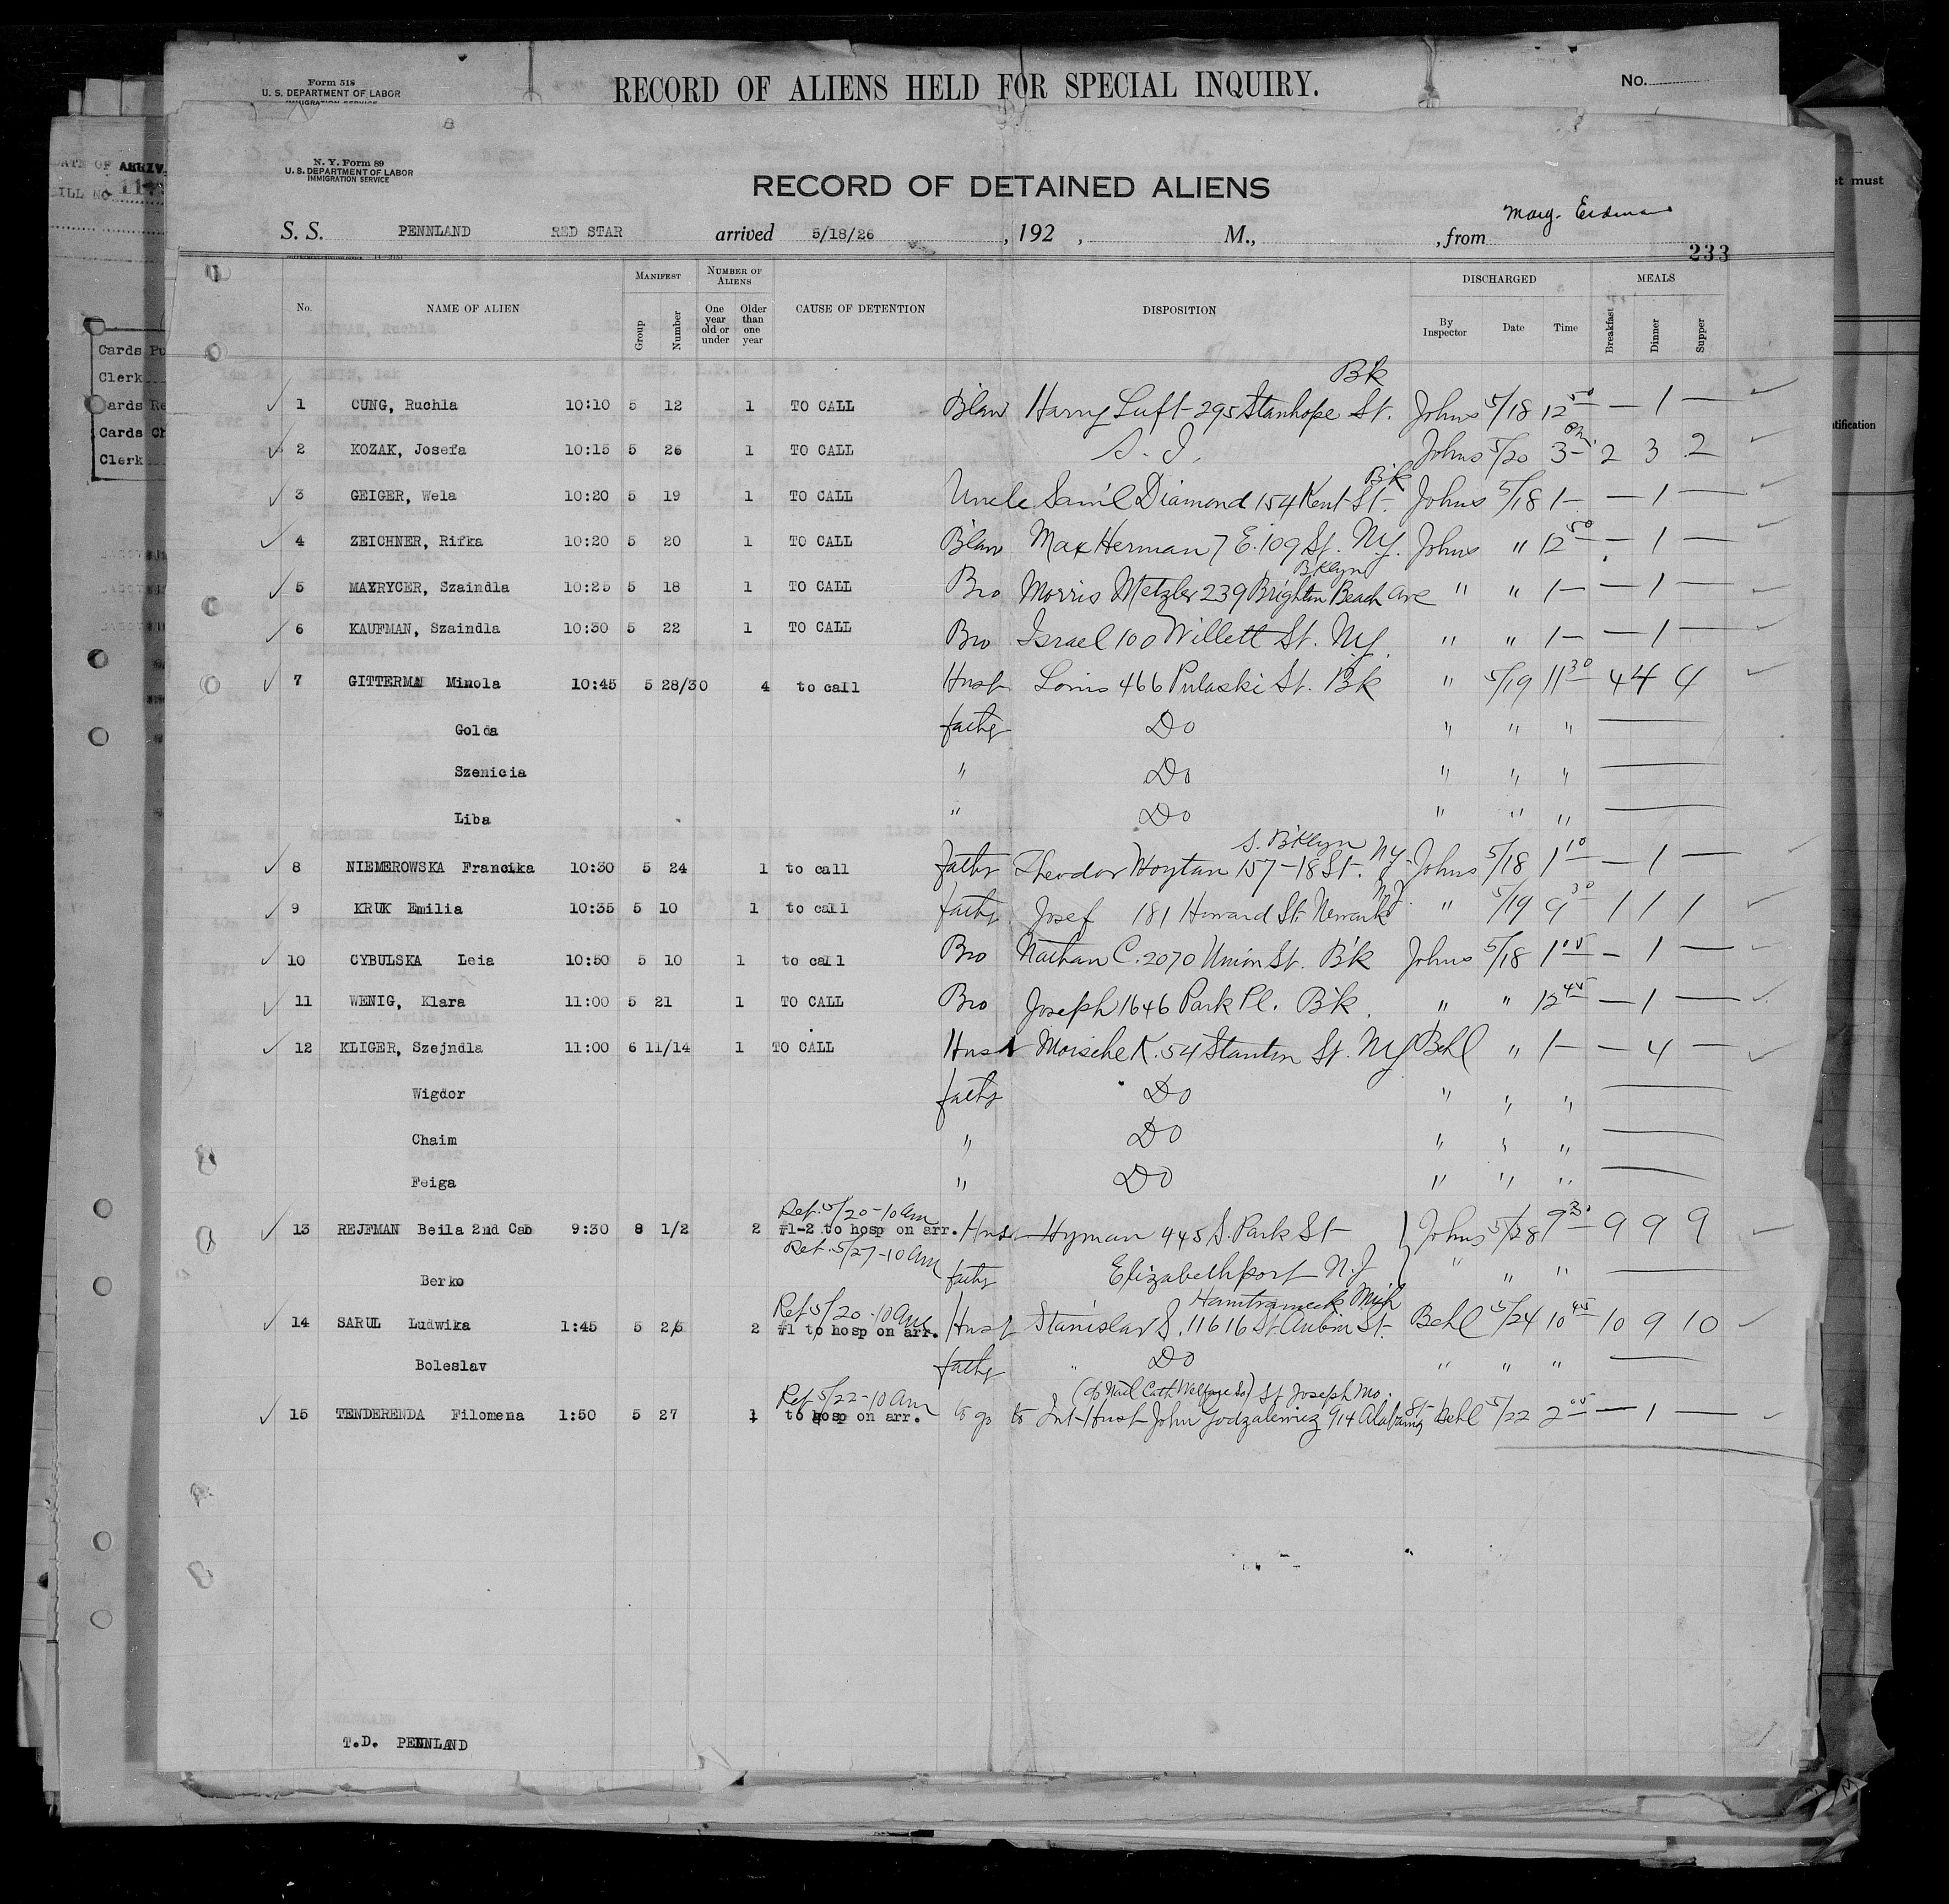 Form 518
U. S. DEPARTMENT OF LABOR
IMMIGRATION SERVICE
RECORD OF ALIENS HELD FOR SPECIAL INQUIRY.
No.
N. Y. Form 89
U. S. DEPARTMENT OF LABOR
IMMIGRATION SERVICE
RECORD OF DETAINED ALIENS
S. S. PENNLAND RED STAR arrived 5/18/26 , 192 , M., , from
233
No. NAME OF ALIEN MANIFEST Group Number NUMBER OF ALIENS One year old or under Older than one year CAUSE OF DETENTION DISPOSITION DISCHARGED By Inspector Date Time MEALS Breakfast Dinner Supper
Bk
1 CUNG, Ruchla 10:10 5 12 1 TO CALL Blaw Harry Luft - 295 Stanhope St. Johns 5/18 12 50 — 1 —
2 KOZAK, Josefa 10:15 5 26 1 TO CALL S. I. Johns 5/20 3 — PM. 2 3 2
Bk
3 GEIGER, Wela 10:20 5 19 1 TO CALL Uncle Sam'l Diamond 154 Kent St. Johns 5/18 1 — — 1 —
4 ZEICHNER, Rifka 10:20 5 20 1 TO CALL Blaw Max Herman 7 E. 109 St. NY. Johns " 12 50 — 1 —
Bklyn
5 MAZRYCER, Szaindla 10:25 5 18 1 TO CALL Bro Morris Metzler 239 Brighton Beach Ave " " 1 — — 1 —
6 KAUFMAN, Szaindla 10:30 5 22 1 TO CALL Bro Israel 100 Willett St. NY. " " 1 — — 1 —
7 GITTERMA Minola 10:45 5 28/30 4 to call Husb Louis 466 Pulaski St. Bk " 5/19 11 30 4 4 4
Golda fathr Do " " "
Szenicia " Do " " "
Liba " Do " " "
S. Bklyn NY.
8 NIEMEROWSKA Francika 10:30 5 24 1 to call fathr Theodor Woytan 157-18 St. Johns 5/18 1 10 — 1 —
9 KRUK Emilia 10:35 5 10 1 to call fathr Josef 181 Howard St. Newark N.J. " 5/19 9 30 1 1 1
10 CYBULSKA Leia 10:50 5 10 1 to call Bro Nathan C. 2070 Union St. Bk Johns 5/18 1 05 — 1 —
11 WENIG, Klara 11:00 5 21 1 TO CALL Bro Joseph 1646 Park Pl. Bk. " " 12 45 — 1 —
12 KLIGER, Szejndla 11:00 6 11/14 1 TO CALL Husb Moische K. 54 Stanton St. NY Behl " 1 — — 4 —
Wigdor fathr Do " " "
Chaim " Do " " "
Feiga " Do " " "
Ret. 5/20-10am
13 REJFMAN Beila 2nd Cab 9:30 8 1/2 2 #1-2 to hosp on arr. Husb Hyman 445 S. Park St Johns 5/28 9 30 9 9 9
Ret. 5/27-10am
Berko fathr Elizabethport N.J " " "
Ret 5/20-10am Hamtrameck Mich
14 SARUL Ludwika 1:45 5 2/5 2 #1 to hosp on arr. Husb Stanislav S. 11616 St Aubin St. Behl 5/24 10 45 10 9 10
Boleslav fathr " Do " " "
Ret 5/22-10am (c/o Natl Cath Welfare So) St Joseph Mo.
15 TENDERENDA Filomena 1:50 5 27 1 to hosp on arr. to go to Int-Husb John Godzalewicz 914 Alabama St- Behl 5/22 2 05 — 1 —
T.D. PENNLAND
DATE OF ARRIV
BILL NO.
Cards Pu
Clerk
Cards Re
Cards Ch
Clerk
et must
ntification